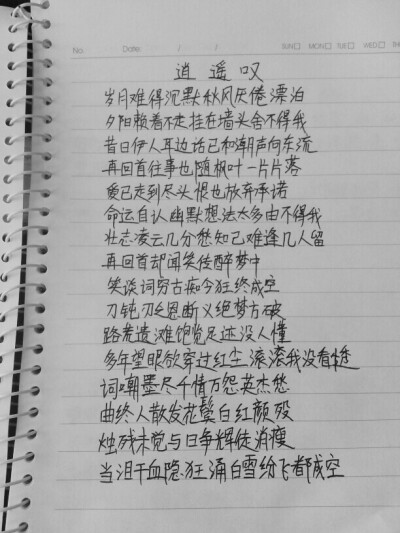 No.
Date: / /
SUN□ MON□ TUE□ WED□ TH
逍遥叹
岁月难得沉默秋风厌倦漂泊
夕阳赖着不走挂在墙头舍不得我
昔日伊人耳边话已和潮声向东流
再回首往事也随枫叶一片片落
爱已走到尽头恨也放弃承诺
命运自认幽默想法太多由不得我
壮志凌云几分愁知己难逢几人留
再回首却闻笑传醉梦中
笑谈词穷古痴今狂终成空
刀钝刃乏恩断义绝梦方破
路荒遗滩饱览足迹没人懂
多年望眼欲穿过红尘滚滚我没看透
词嘲墨尽千情万怨英杰愁
曲终人散发花鬓白红颜殁
烛残未觉与日争辉徒消瘦
当泪干血隐狂涌白雪纷飞都成空